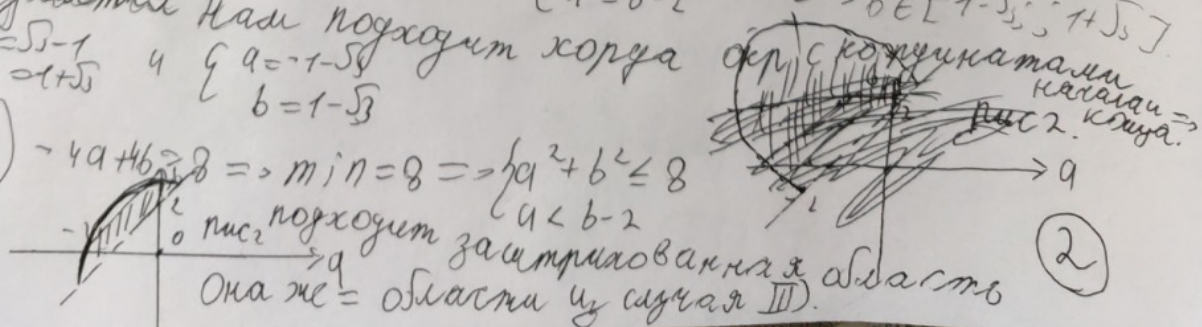 нам подходит хорда окр. с координатами
начала и => конца.
b ∈ [1-√3; 1+√3].
=√3-1
=1+√3
и { a=-1-√3
b=1-√3
рис 2.
-4a+4b ≥ 8 => min=8 => { a²+b² ≤ 8
a < b-2
a
рис 2 подходит заштрихованная область
0
a
Она же = области из случая III).
2